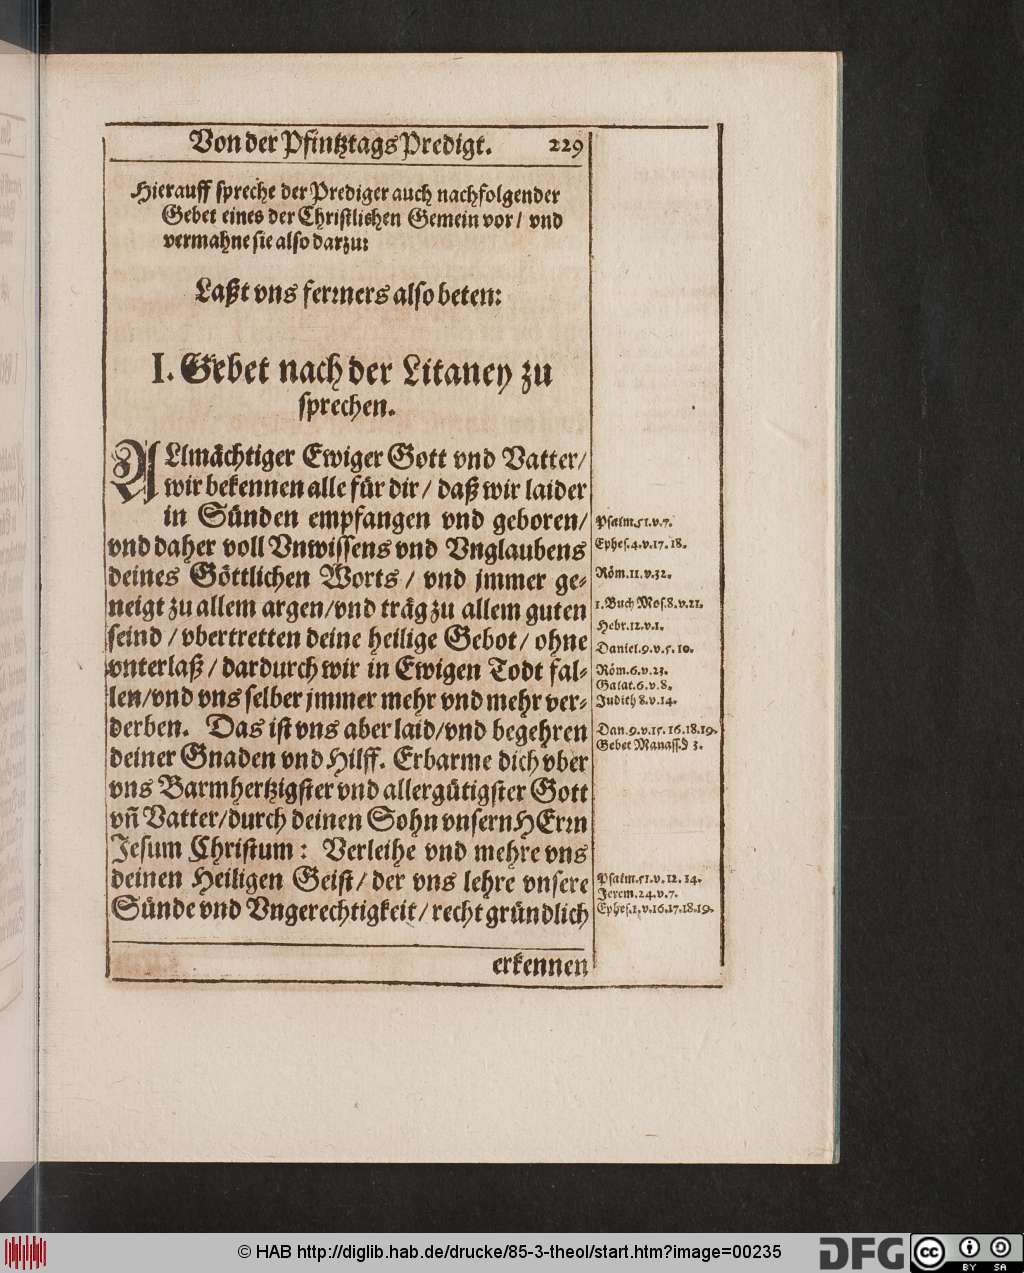 Von der Pfintztags Predigt. 229
Hierauff spreche der Prediger auch nachfolgender
Gebet eines der Christlichen Gemein vor / vnd
vermahne sie also darzu:
Laßt vns ferrners also beten:
I. Gebet nach der Litaney zu
sprechen.
ALlmächtiger Ewiger Gott vnd Vatter /
wir bekennen alle für dir / daß wir laider
in Sünden empfangen vnd geboren /
vnd daher voll Vnwissens vnd Vnglaubens
deines Göttlichen Worts / vnd jmmer ge-
neigt zu allem argen / vnd träg zu allem guten
seind / vbertretten deine heilige Gebot / ohne
vnterlaß / dardurch wir in Ewigen Todt fal-
len / vnd vns selber jmmer mehr vnd mehr ver-
derben. Das ist vns aber laid / vnd begehren
deiner Gnaden vnd Hilff. Erbarme dich vber
vns Barmhertzigster vnd allergütigster Gott
vñ Vatter / durch deinen Sohn vnsern HErrn
Jesum Christum : Verleihe vnd mehre vns
deinen Heiligen Geist / der vns lehre vnsere
Sünde vnd Vngerechtigkeit / recht gründlich
erkennen
Psalm.51.v.7.
Ephes.4.v.17.18.
Röm.11.v.32.
1.Buch Mos.8.v.21.
Hebr.12.v.1.
Daniel.9.v.5.10.
Röm.6.v.23.
Galat.6.v.8.
Judith 8.v.14.
Dan.9.v.15.16.18.19.
Gebet Manass. 3.
Psalm.51.v.12.14.
Jerem.24.v.7.
Ephes.1.v.16.17.18.19.
© HAB http://diglib.hab.de/drucke/85-3-theol/start.htm?image=00235
DFG
cc BY SA